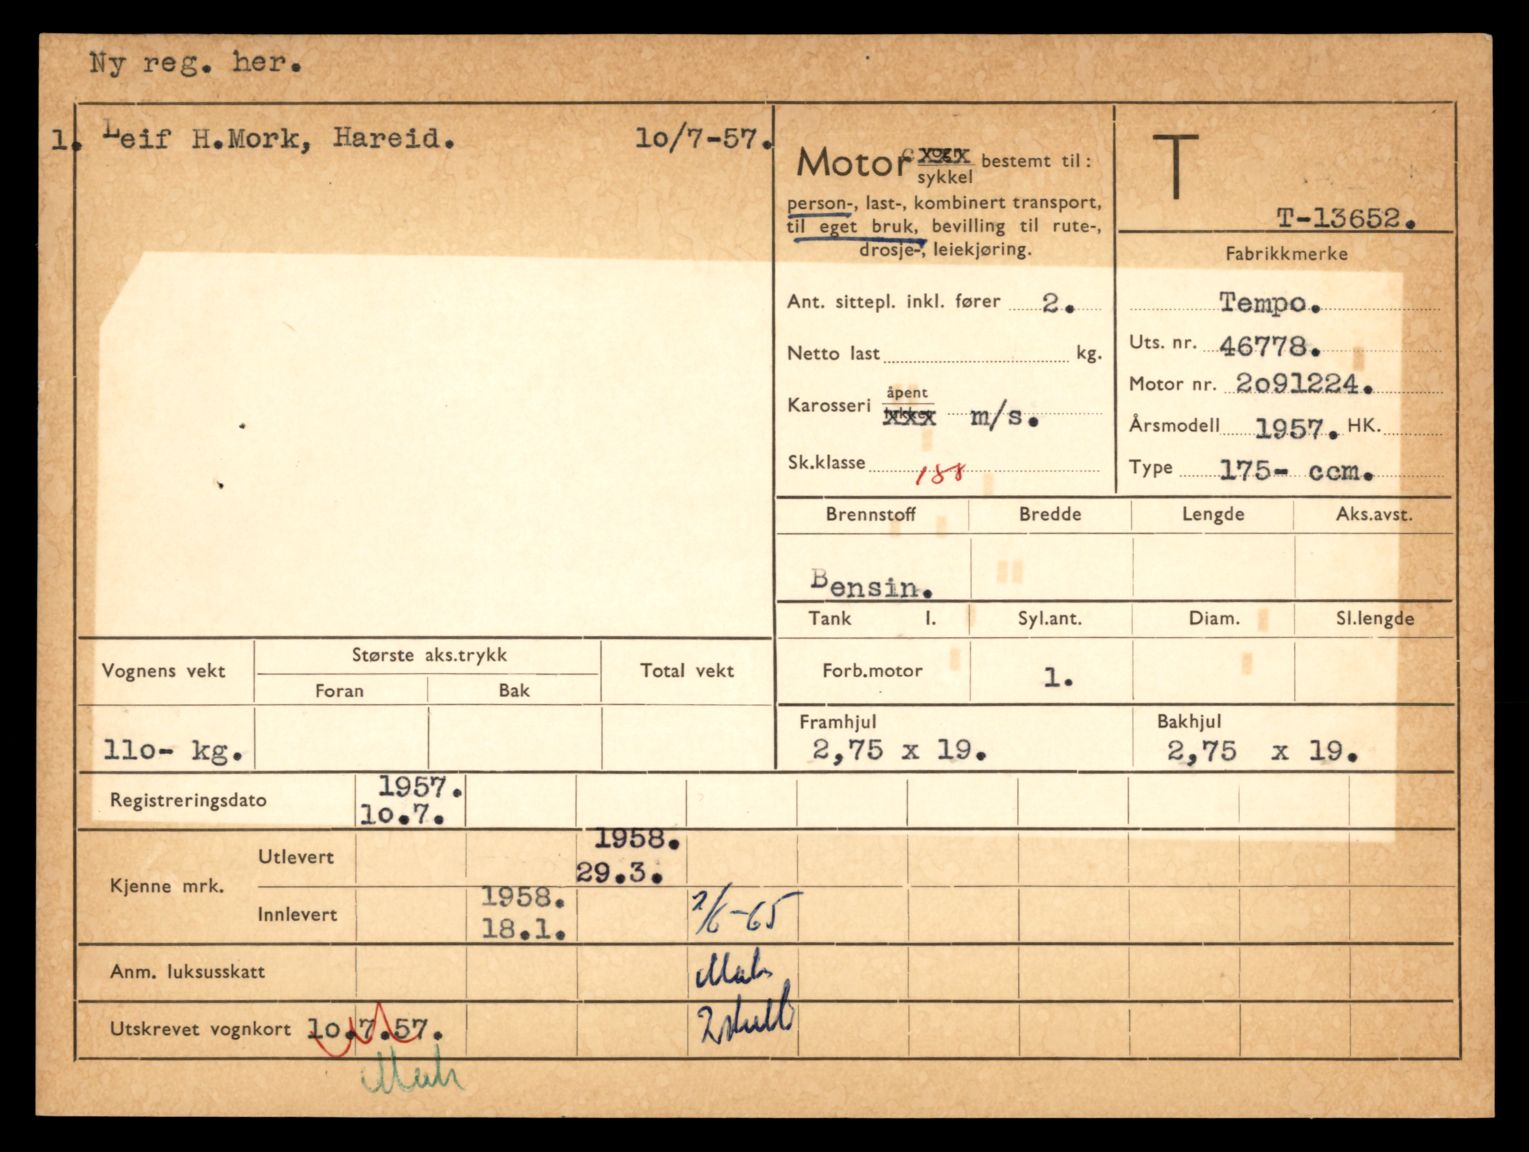 Ny reg. her.
1. Leif H.Mork, Hareid. 1o/7-57.
Motor sykkel bestemt til:
person-, last-, kombinert transport,
til eget bruk, bevilling til rute-,
drosje-, leiekjøring.
T
T-13652.
Fabrikkmerke
Ant. sittepl. inkl. fører 2.
Tempo.
Netto last kg.
Uts. nr. 46778.
Motor nr. 2o91224.
Karosseri åpent m/s.
Årsmodell 1957. HK.
Sk.klasse 188
Type 175- ccm.
Brennstoff Bredde Lengde Aks.avst.
Bensin.
Tank l. Syl.ant. Diam. Sl.lengde
Forb.motor 1.
Vognens vekt Største aks.trykk Total vekt
Foran Bak
110- kg.
Framhjul Bakhjul
2,75 x 19. 2,75 x 19.
Registreringsdato 1957.
1o.7.
Kjenne mrk.
Utlevert 1958.
29.3.
Innlevert 1958.
18.1.
2/6-65
Anm. luksusskatt
Utskrevet vognkort 1o.7.57.